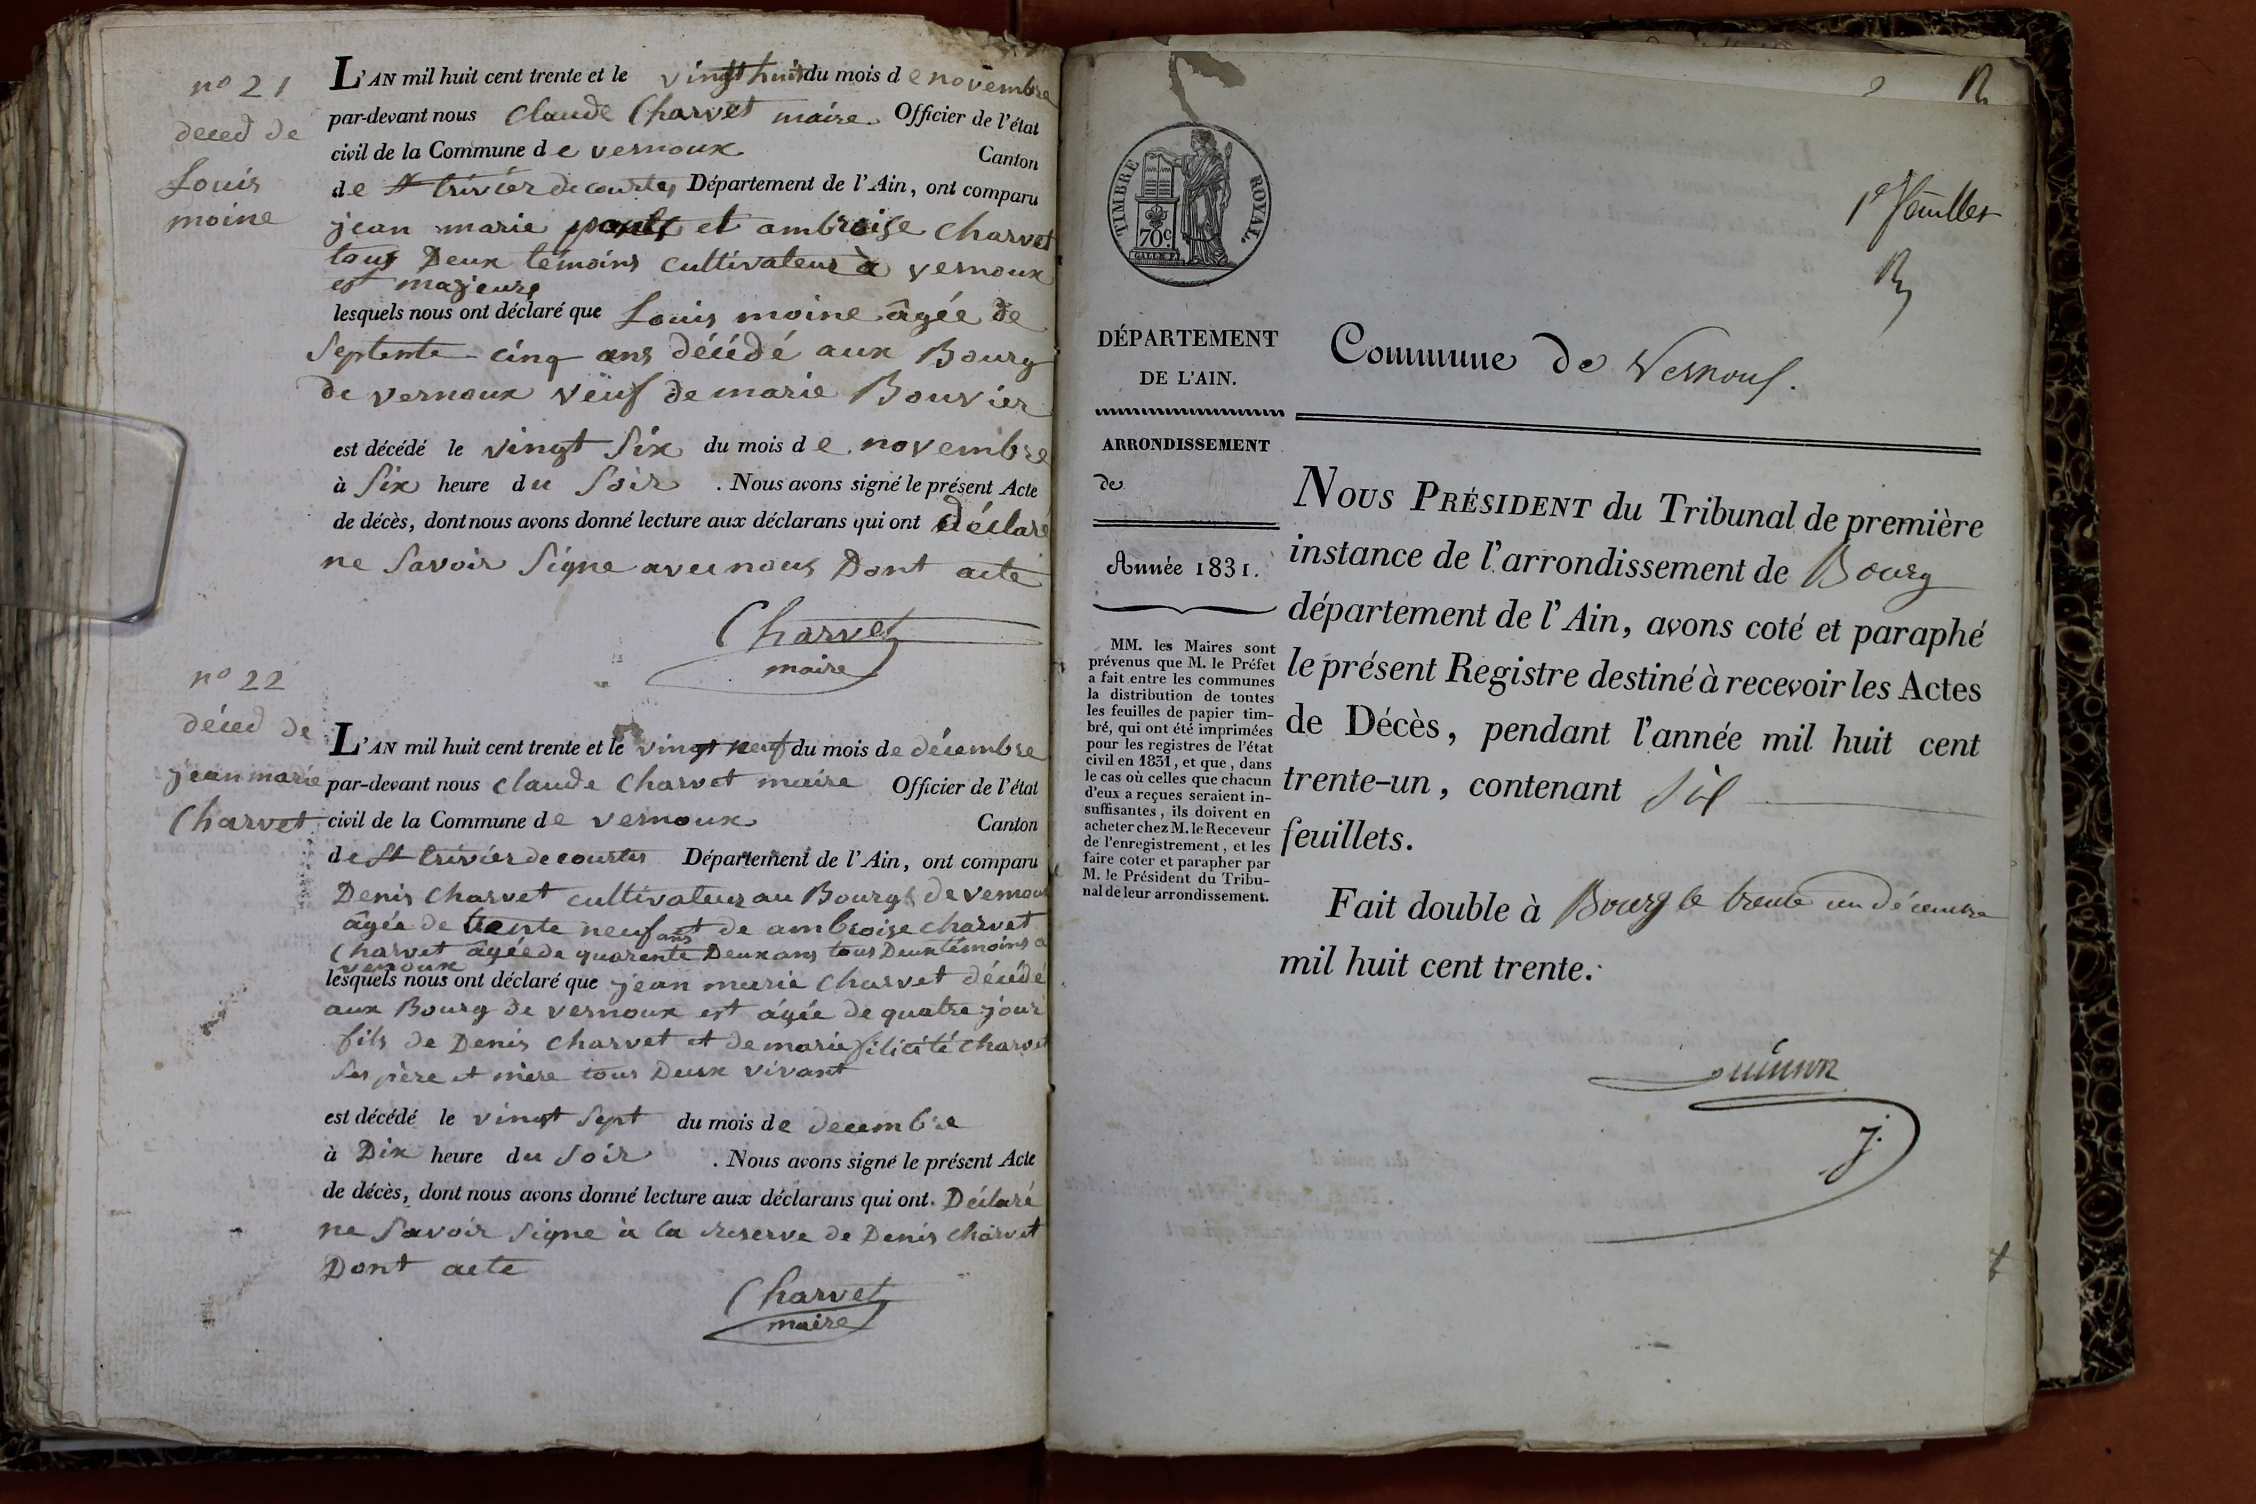 no 21
deced de
Louis
moine
L'AN mil huit cent trente et le vingt huit du mois de novembre
par-devant nous Claude Charvet maire Officier de l'état
civil de la Commune de vernoux Canton
de St trivier de courtes Département de l'Ain, ont comparu
jean marie et ambroise Charvet
tous Deux temoins cultivateur à vernoux
et majeurs
lesquels nous ont déclaré que Louis moine âgée de
Septente cinq ans décédé aux Bourg
de vernoux veuf de marie Bouvier
est décédé le vingt Six du mois de novembre
à Six heure du Soir . Nous avons signé le présent Acte
de décès, dont nous avons donné lecture aux déclarans qui ont déclaré
ne Savoir Signe avec nous Dont acte
Charvet
maire
no 22
déced de
jean marie
Charvet
L'AN mil huit cent trente et le vingt neuf du mois de décembre
par-devant nous Claude Charvet maire Officier de l'état
civil de la Commune de vernoux Canton
de St trivier de courtes Département de l'Ain, ont comparu
Denis Charvet cultivateur au Bourg de vernoux
âgée de trente neuf ans et de ambroise charvet
Charvet âgée de quarente Deux ans tous Deux témoins a
vernoux
lesquels nous ont déclaré que jean marie Charvet décédé
aux Bourg de vernoux est âgée de quatre jour
fils de Denis Charvet et de marie filicité Charvet
Ses père et mère tous Deux vivant
est décédé le vingt Sept du mois de decembre
à Dix heure du Soir . Nous avons signé le présent Acte
de décès, dont nous avons donné lecture aux déclarans qui ont. Déclaré
ne Savoir Signe à la reserve de Denis Charvet
Dont acte
Charvet
maire
TIMBRE ROYAL.
70c
1er feuillet
DÉPARTEMENT
DE L'AIN.
ARRONDISSEMENT
de
Année 1831.
MM. les Maires sont
prévenus que M. le Préfet
a fait entre les communes
la distribution de toutes
les feuilles de papier tim-
bré, qui ont été imprimées
pour les registres de l'état
civil en 1831, et que, dans
le cas où celles que chacun
d'eux a reçues seraient in-
suffisantes, ils doivent en
acheter chez M. le Receveur
de l'enregistrement, et les
faire coter et parapher par
M. le Président du Tribu-
nal de leur arrondissement.
Commune de Vernoux.
NOUS PRÉSIDENT du Tribunal de première
instance de l'arrondissement de Bourg
département de l'Ain, avons coté et paraphé
le présent Registre destiné à recevoir les Actes
de Décès, pendant l'année mil huit cent
trente-un, contenant six
feuillets.
Fait double à Bourg le trente un décembre
mil huit cent trente.